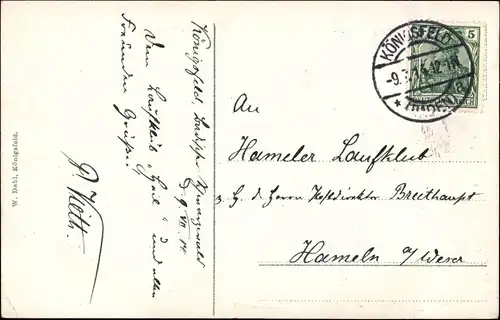 Königsfeld, Badischer Schwarzwald
9. VII. 14
Dem Laufklub "Heil" und allen
Freunden Grüße.
P. Kloth.
W. Dahl, Königsfeld.
KÖNIGSFELD
-9.7.14.12-1N
* (BADEN) a
5
An
Hameler Laufklub
z. H. d. Herrn Breithaupt
Hameln a/Weser